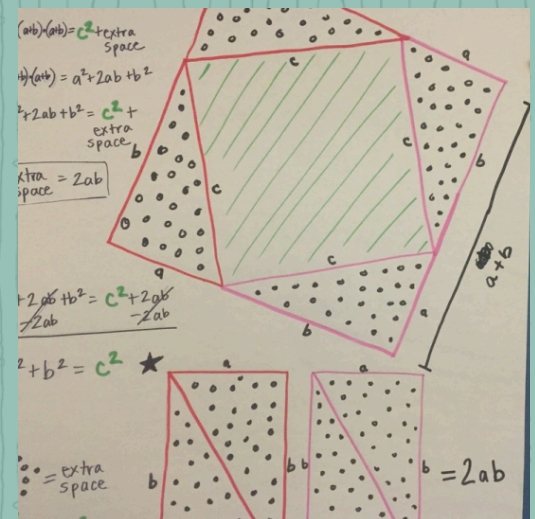 (a+b)•(a+b)= c²+extra
space
b)•(a+b) = a²+2ab+b²
²+2ab+b²= c² +
extra
space
xtra
space = 2ab
+2ab+b²= c²+2ab
-2ab -2ab
²+b² = c²
= extra
space
c
a
b
c
c
b
a
c
b
a
a+b
a
a
b
b
b
b
=2ab